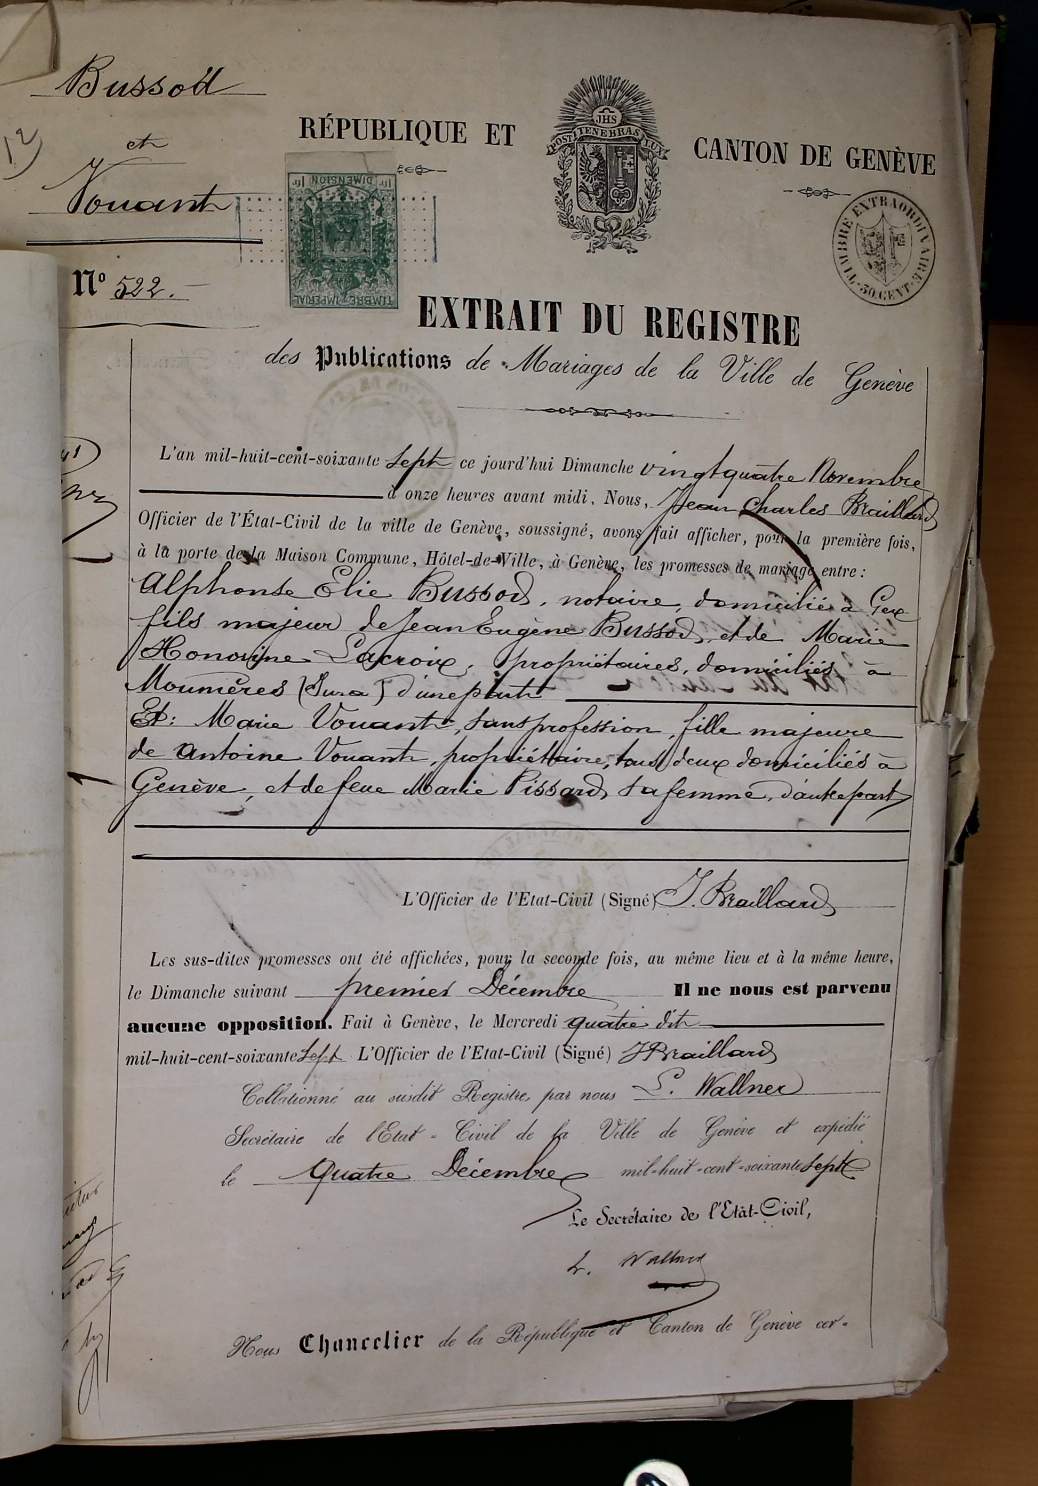 Bussod
et
Vouant
12)
RÉPUBLIQUE ET
CANTON DE GENÈVE
JHS
POST TENEBRAS LUX
DIMENSION
TIMBRE IMPÉRIAL
TIMBRE EXTRAORDINAIRE
30 CENT
Nº 522.
EXTRAIT DU REGISTRE
des Publications de Mariages de la Ville de Genève
L'an mil-huit-cent-soixante sept ce jourd'hui Dimanche vingt quatre Novembre
à onze heures avant midi, Nous, Jean Charles Braillard
Officier de l'État-Civil de la ville de Genève, soussigné, avons fait afficher, pour la première fois,
à la porte de la Maison Commune, Hôtel-de-Ville, à Genève, les promesses de mariage entre :
Alphonse Elie Bussod, notaire, domicilié à Gex
fils majeur de Jean Eugène Bussod, et de Marie
Honorine Lacroix, propriétaires, domiciliés à
Moumères (Jura) d'une part
Et: Marie Vouant, sans profession, fille majeure
de Antoine Vouant, propriétaire, tous deux domiciliés à
Genève, et de feue Marie Pissard, sa femme, d'autre part
L'Officier de l'Etat-Civil (Signé) J. Braillard
Les sus-dites promesses ont été affichées, pour la seconde fois, au même lieu et à la même heure,
le Dimanche suivant premier Décembre Il ne nous est parvenu
aucune opposition. Fait à Genève, le Mercredi quatre dit
mil-huit-cent-soixante sept L'Officier de l'Etat-Civil (Signé) J Braillard
Collationné au susdit Registre par nous L. Wallner
Secrétaire de l'Etat-Civil de la Ville de Genève et expédié
le quatre Décembre mil-huit-cent-soixante sept
Le Secrétaire de l'Etât-Civil,
L. Wallner
Nous Chancelier de la République et Canton de Genève cer-